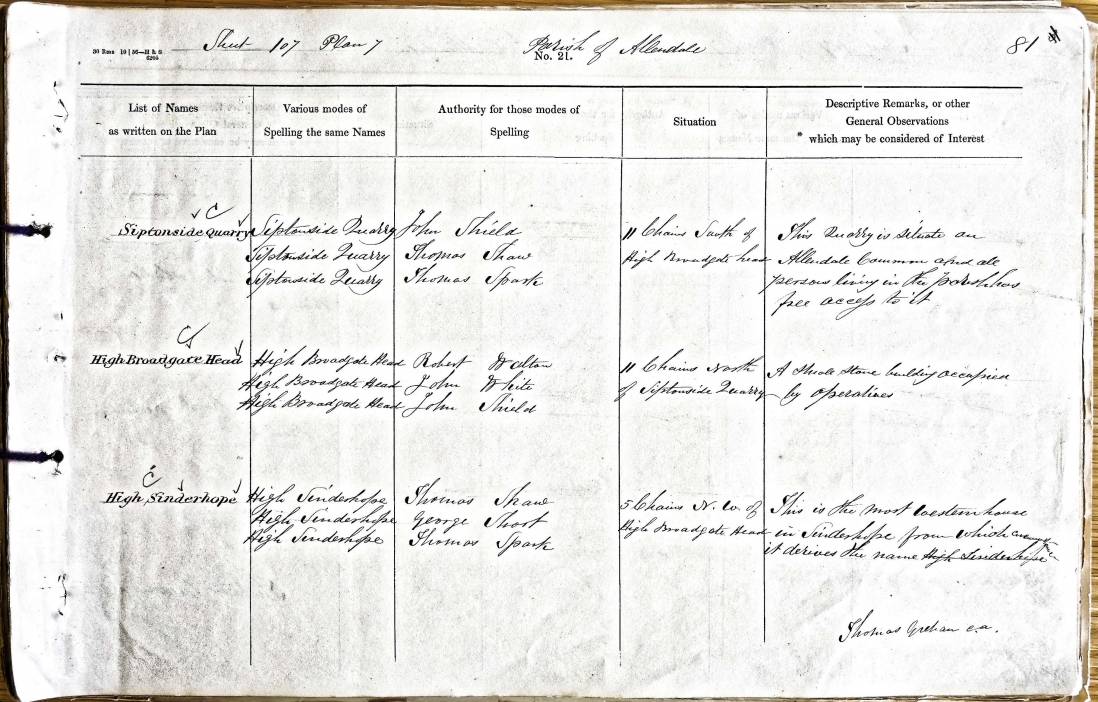 30 Rms 10 | 56—H & S
6205
Sheet 107 Plan 7
Parish of Allendale
No. 21.
81
List of Names
as written on the Plan
Various modes of
Spelling the same Names
Authority for those modes of
Spelling
Situation
Descriptive Remarks, or other
General Observations
which may be considered of Interest
Siptonside Quarry
Siptonside Quarry
Siptonside Quarry
Siptonside Quarry
John Shield
Thomas Shaw
Thomas Spark
11 Chains South of
High Broadgate head
This Quarry is situate on
Allendale Common and all
persons living in the parish has
free access to it
High Broadgate Head
High Broadgate Head
High Broadgate Head
High Broadgate Head
Robert Walton
John White
John Shield
11 Chains North
of Siptonside Quarry
A Small Stone building occupied
by operatives
High Sinderhope
High Sinderhope
High Sinderhope
High Sinderhope
Thomas Shaw
George Short
Thomas Spark
5 Chains N. W. of
High Broadgate Head
This is the most western house
in Sinderhope from which
it derives the name High Sinderhope
Thomas c.a.